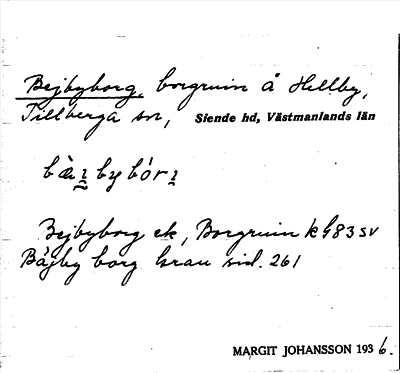 Bejbyborg, borgruin å Hellby,
Tillberga sn, Siende hd, Västmanlands län
bȧ̀ʒbybórʒ
Bejbyborg ek, Borgruin k 983 sv
Båjby borg Grau sid. 261
MARGIT JOHANSSON 1936.